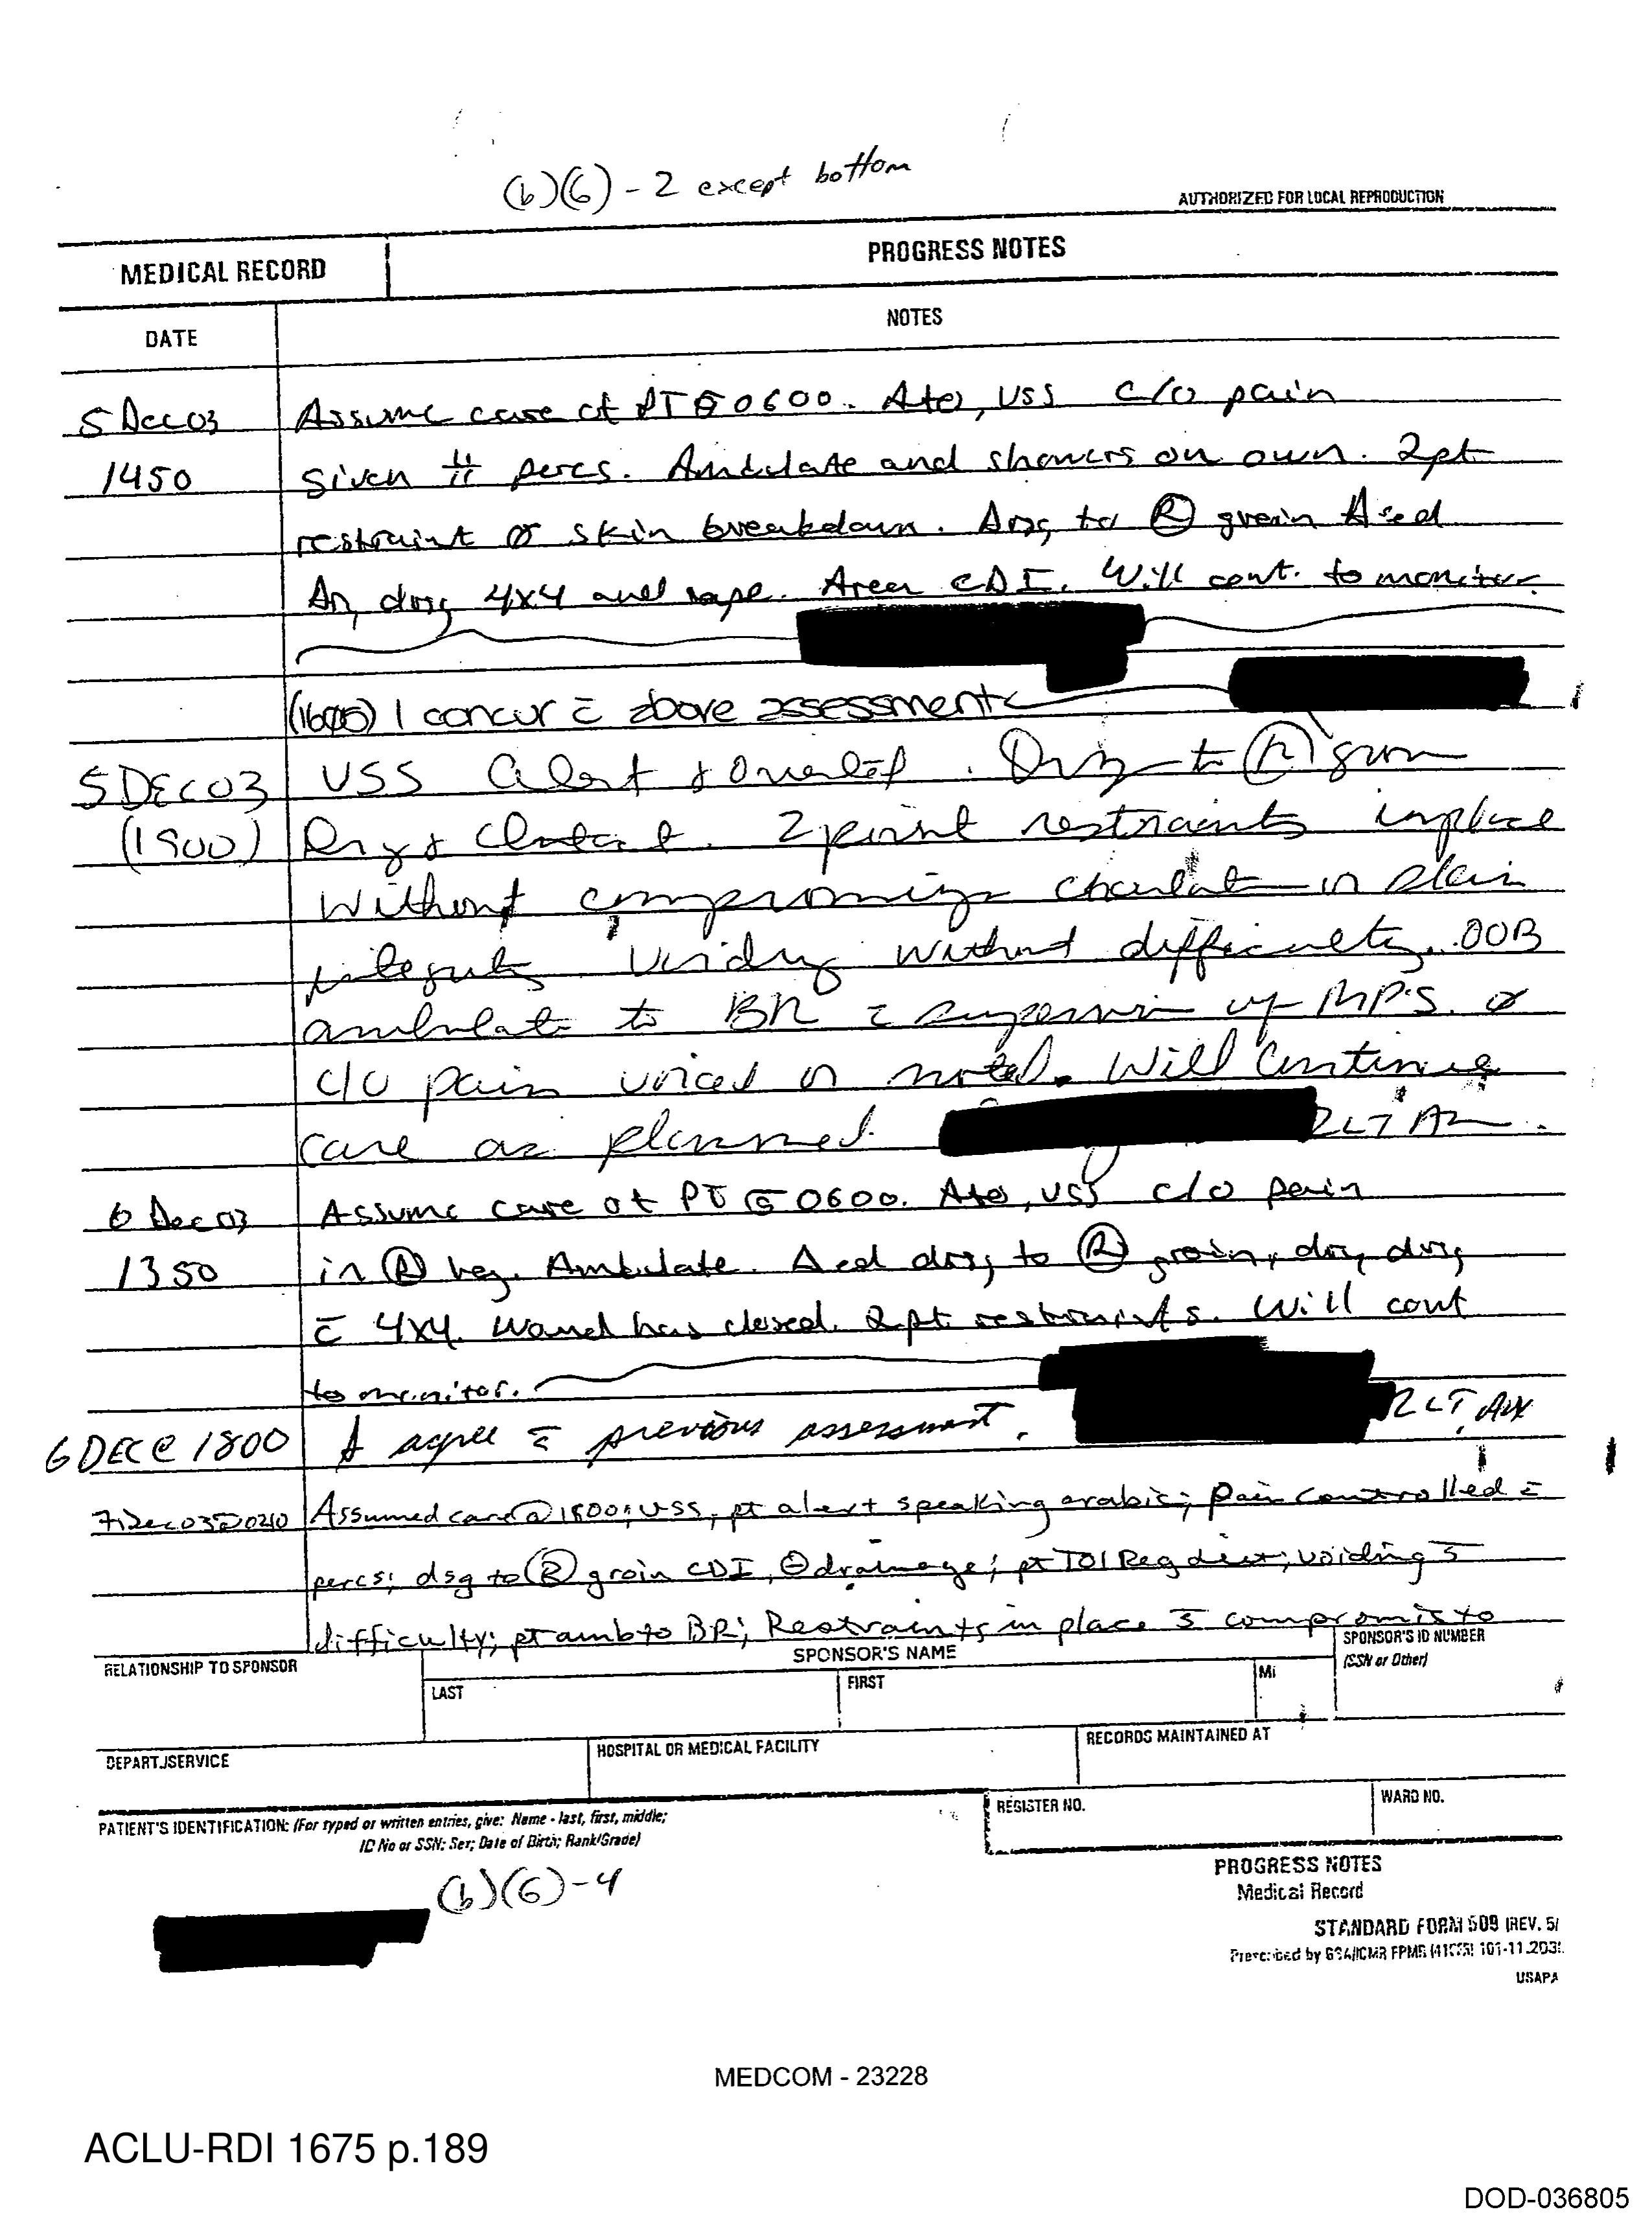 (b)(6) - 2 except bottom
AUTHORIZED FOR LOCAL REPRODUCTION
MEDICAL RECORD
PROGRESS NOTES
DATE
NOTES
5 Dec 03 Assume care of PT @ 0600. A+O, VSS c/o pain
1450 given II percs. Ambulate and showers on own. 2pt
restraint ∅ skin breakdown. Drsg to Ⓡ groin
drsg 4x4 and tape. Area CDI. Will cont. to monitor
I concur c̄ above assessment
5 DEC 03 VSS alert & oriented. Drsg to Ⓡ groin
(1900) Dry & intact. 2 point restraints in place
without compromising circulation or skin
integrity. Voiding without difficulty. OOB
ambulate to BR c̄ supervision of MP'S. ∅
c/o pain voiced or noted. Will continue
care as planned. 2LT AN
6 Dec 03 Assume care of PT @ 0600. A+O, VSS c/o pain
1350 in Ⓡ leg. Ambulate. Δed drsg to Ⓡ groin, dry drsg
c̄ 4x4. Wound has closed. 2pt. restraints. Will cont
to monitor.
6 DEC @ 1800 I agree c̄ previous assessment. 2LT, AN
7 Dec 03 @ 0210 Assumed care @ 1800; VSS, pt alert speaking arabic; pain controlled c̄
percs; dsg to Ⓡ groin CDI, ⊖ drainage; pt TOl Reg diet; voiding s̄
difficulty; pt amb to BR; Restraints in place s̄ compromis to
RELATIONSHIP TO SPONSOR
SPONSOR'S NAME
SPONSOR'S ID NUMBER
(SSN or Other)
LAST
FIRST
MI
DEPART./SERVICE
HOSPITAL OR MEDICAL FACILITY
RECORDS MAINTAINED AT
PATIENT'S IDENTIFICATION: (For typed or written entries, give: Name - last, first, middle;
ID No or SSN; Sex; Date of Birth; Rank/Grade)
REGISTER NO.
WARD NO.
(b)(6)-4
PROGRESS NOTES
Medical Record
STANDARD FORM 509 (REV. 5/
Prescribed by GSA/ICMR FPMR (41CFR) 101-11.203(
USAPA
MEDCOM - 23228
ACLU-RDI 1675 p.189
DOD-036805